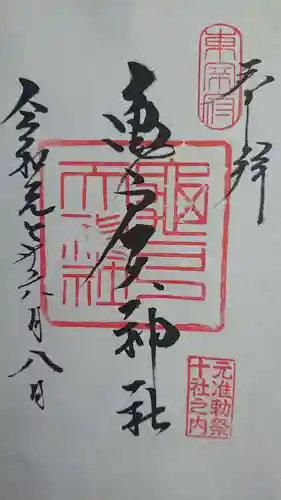 東宰府
奉拝
元准勅祭
十社之内
亀戸天神社
亀戸天神社
令和元年六月八日